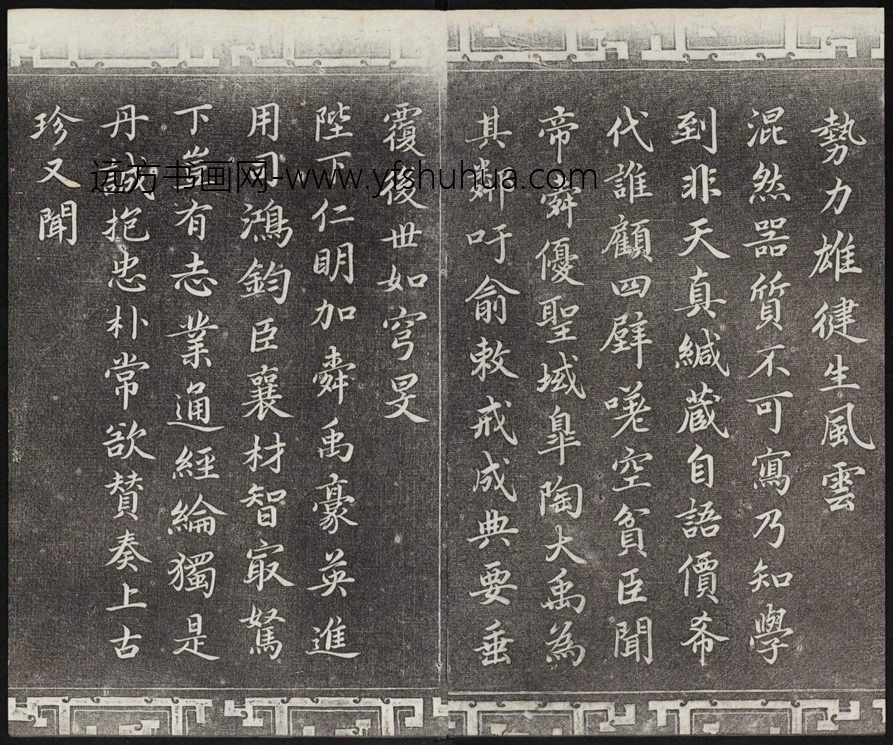 勢力雄健生風雲
混然器質不可寫乃知學
到非天真緘藏自語價希
代誰顧四壁嗟空貧臣聞
帝舜優聖域臯陶大禹為
其鄰吁俞敕戒成典要垂
覆後世如穹旻
陛下仁明加舜禹豪英進
用司鴻鈞臣襄材智㝡駑
下豈有志業通經綸獨是
丹誠抱忠朴常欲贊奏上古
珍又聞
远方书画网-www.yfshuhua.com